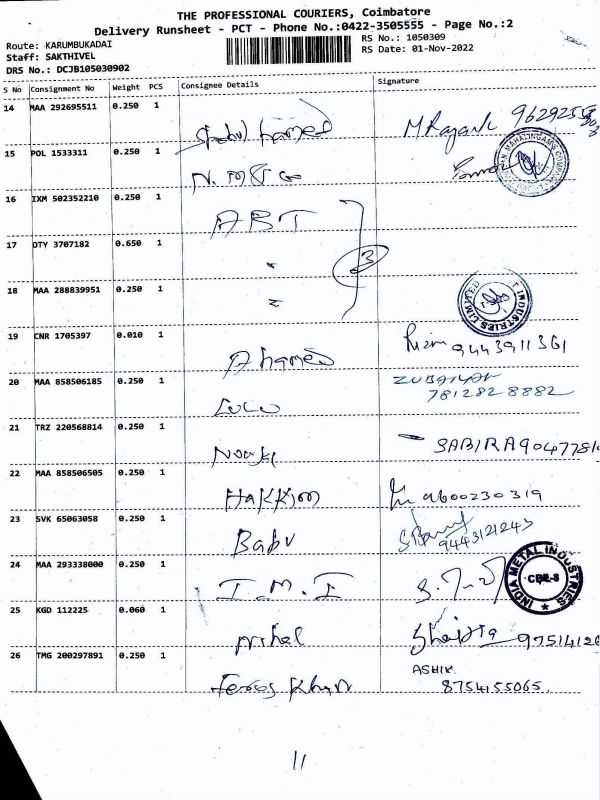 THE PROFESSIONAL COURIERS, Coimbatore
Delivery Runsheet - PCT - Phone No.:0422-3505555 - Page No.:2
Route: KARUMBUKADAI
Staff: SAKTHIVEL
DRS No.: DCJB105030902
RS No.: 1050309
RS Date: 01-Nov-2022
S No Consignment No Weight PCS Consignee Details Signature
14 MAA 292695511 0.250 1
hameed
15 POL 1533311 0.250 1
16 IXM 502352210 0.250 1
ABT
17 OTY 3707182 0.650 1
" 3
18 MAA 288839951 0.250 1
INDUSTRIES LIMITED
19 CNR 1705397 0.010 1
Ahamed 9443911361
20 MAA 858506185 0.250 1
LULU 7812828882
21 TRZ 220568814 0.250 1
SABIRA 904778
22 MAA 858506505 0.250 1
HAKKIM 9600230319
23 SVK 65063058 0.250 1
Babu 9443121243
24 MAA 293338000 0.250 1
I.M.I
INDIA METAL INDUSTRIES CBE-8
25 KGD 112225 0.060 1
975141
26 TMG 200297891 0.250 1
Feroos Khan ASHIK
8754155065
11